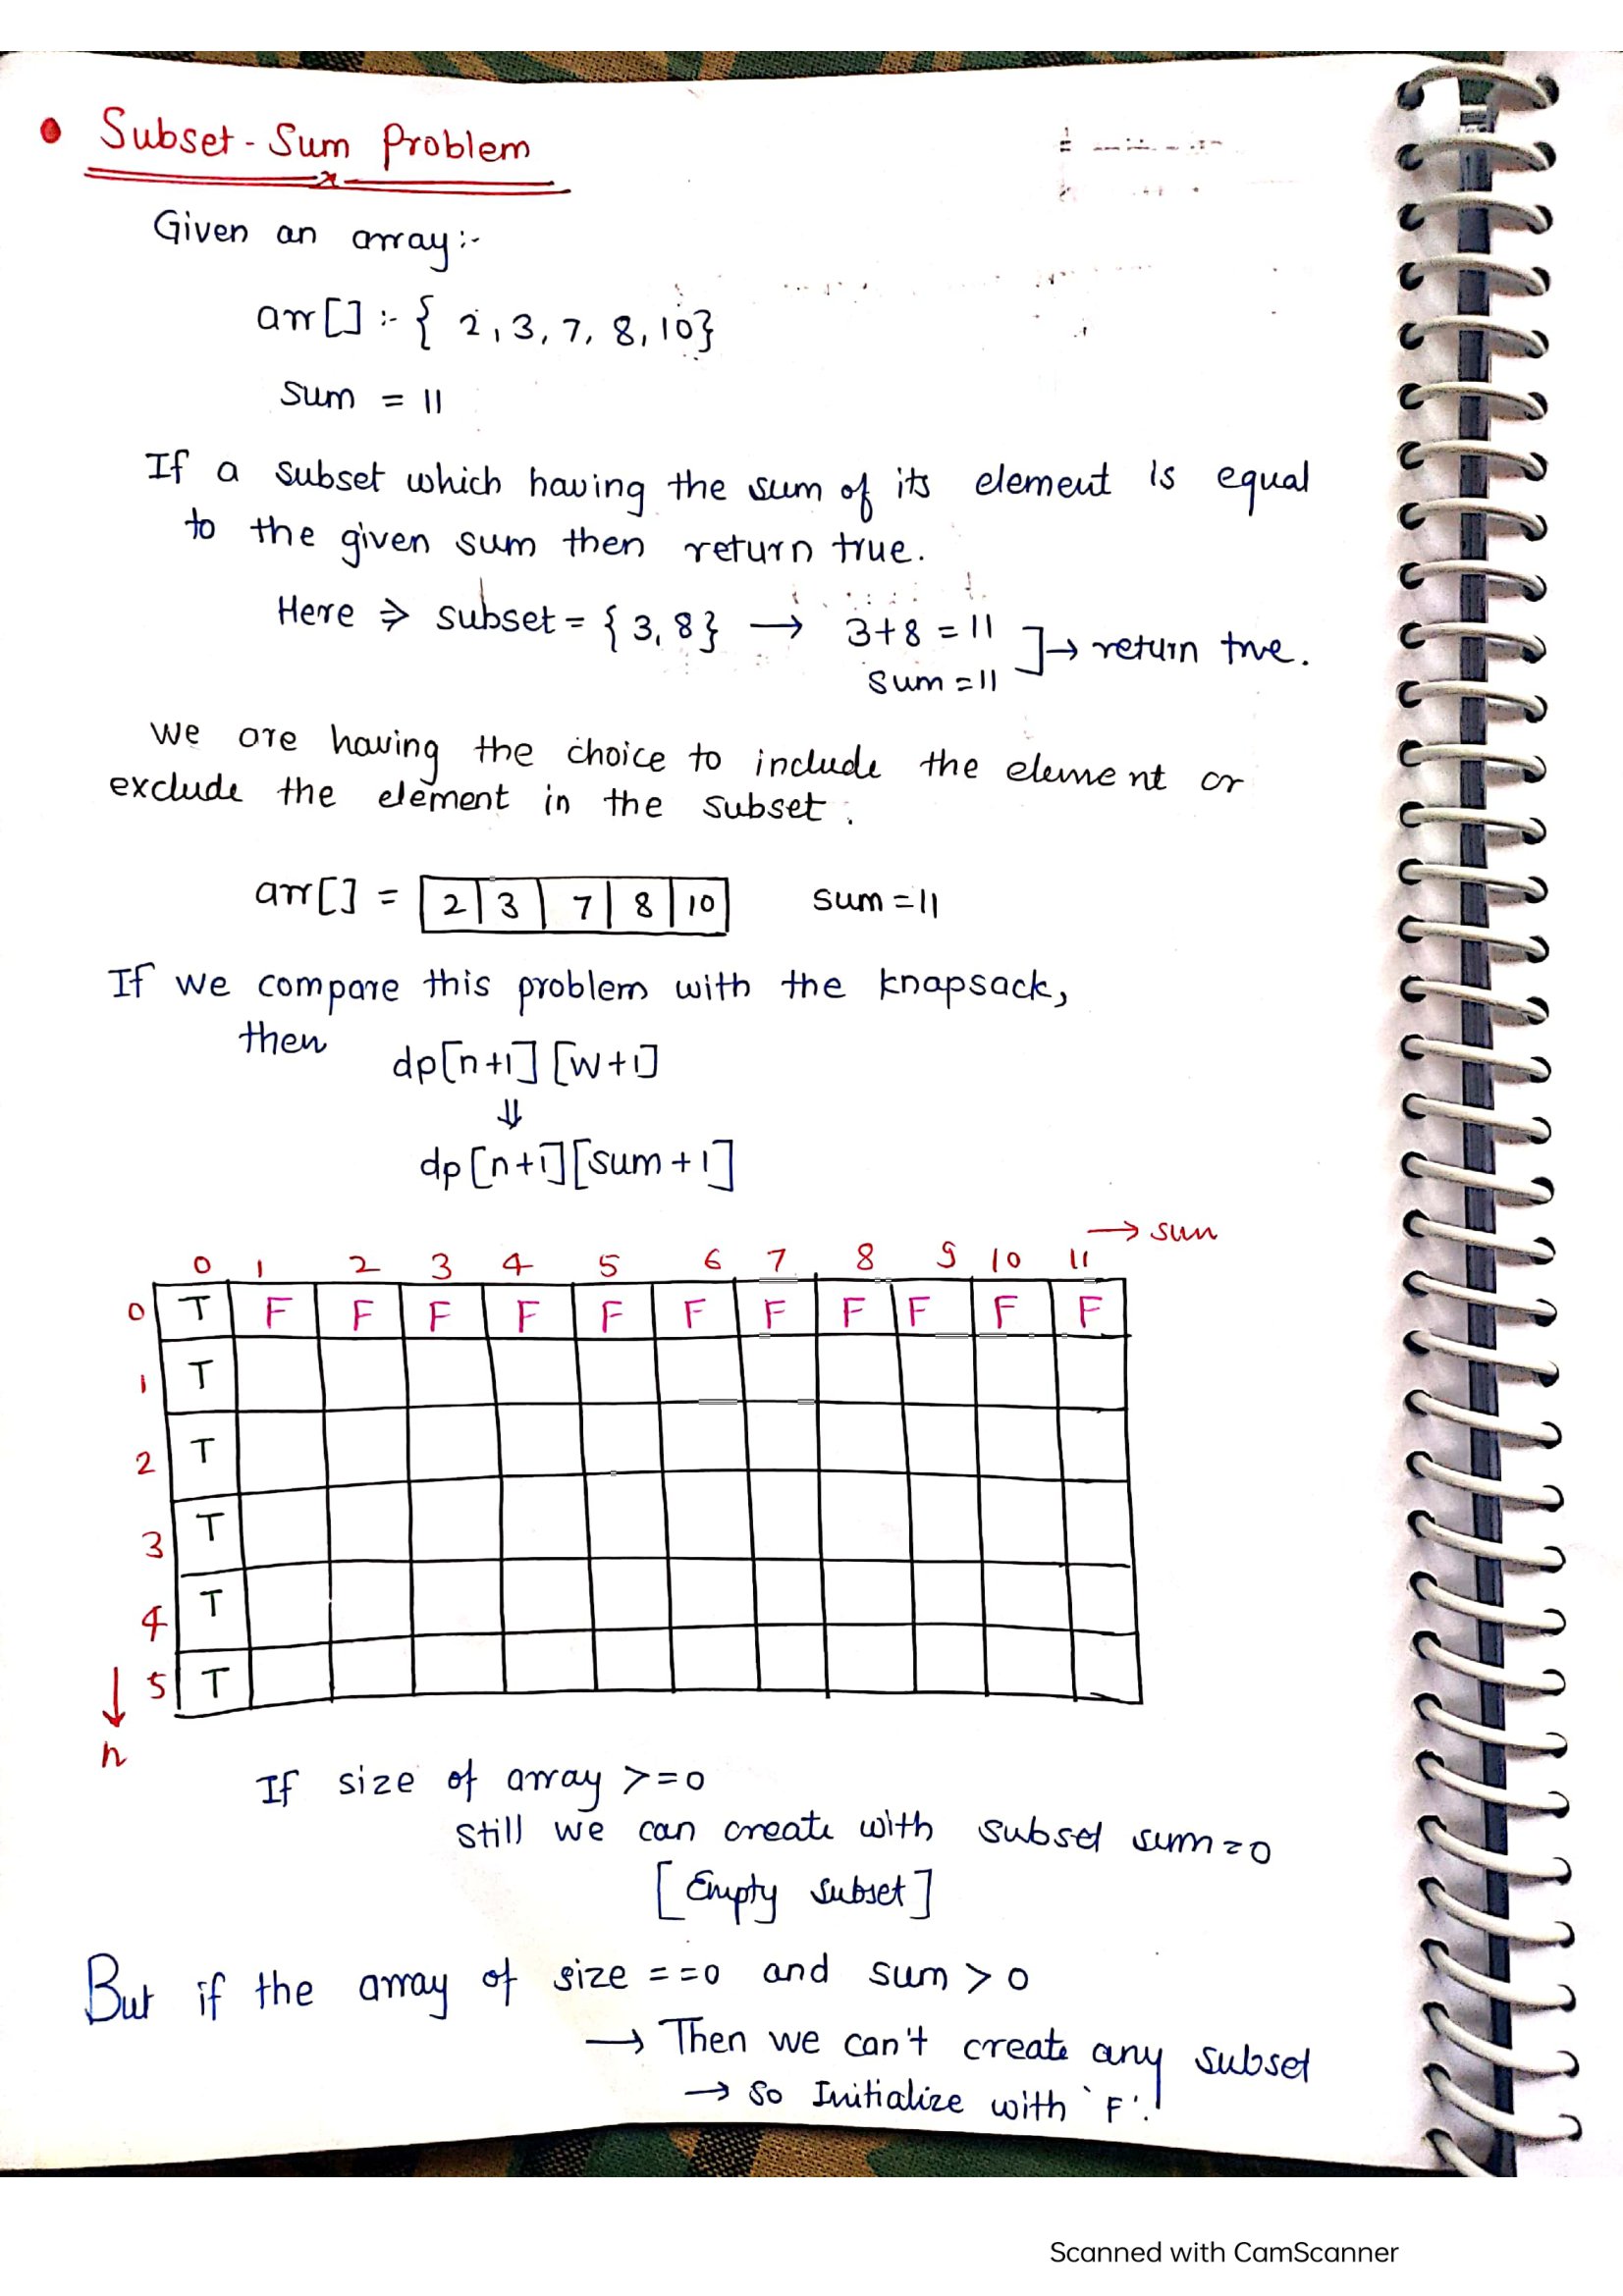 • Subset - Sum Problem
Given an array :-
arr[] :- { 2, 3, 7, 8, 10}
sum = 11
If a subset which having the sum of its element is equal
to the given sum then return true.
Here ⇒ subset = { 3, 8} → 3+8 = 11
sum = 11 ] → return true.
we are having the choice to include the element or
exclude the element in the subset.
arr[] = 2 3 7 8 10 sum = 11
If we compare this problem with the knapsack,
then dp[n+1][w+1]
⇓
dp[n+1][sum+1]
→ sum
0 1 2 3 4 5 6 7 8 9 10 11
0 T F F F F F F F F F F F
1 T
2 T
3 T
4 T
↓ 5 T
n
If size of array >=0
still we can create with subset sum=0
[ Empty subset ]
But if the array of size ==0 and sum > 0
→ Then we can't create any subset
→ so Initialize with 'F'.
Scanned with CamScanner